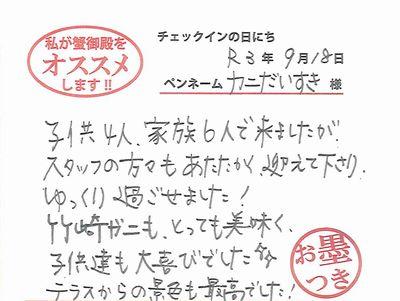 私が蟹御殿を
オススメ
します!!
チェックインの日にち
R3年9月18日
ペンネーム カニだいすき 様
子供4人、家族6人で来ましたが
スタッフの方々もあたたかく迎えて下さり、
ゆっくり過ごせました!
竹崎ガニも、とっても美味く、
子供達も大喜びでした
テラスからの景色も最高でした!
お墨
つき